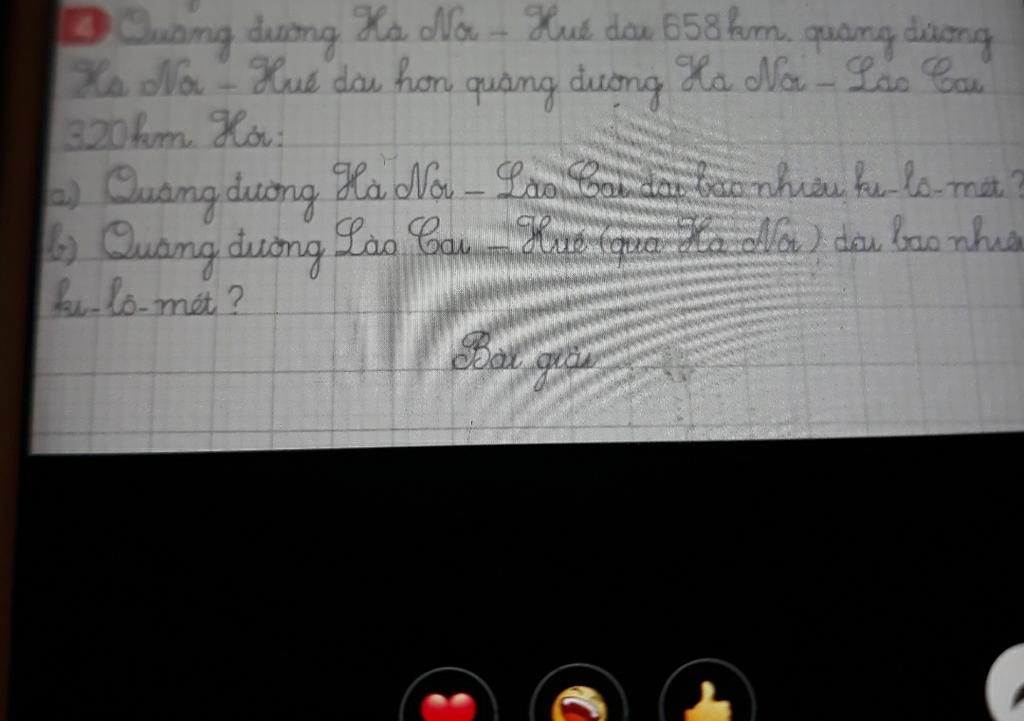 4 Quãng đường Hà Nội - Huế dài 658km. quãng đường
Hà Nội - Huế dài hơn quãng đường Hà Nội - Lào Cai
320km. Hỏi:
a) Quãng đường Hà Nội - Lào Cai dài bao nhiêu ki-lô-mét?
b) Quãng đường Lào Cai - Huế (qua Hà Nội) dài bao nhiêu
ki-lô-mét?
Bài giải